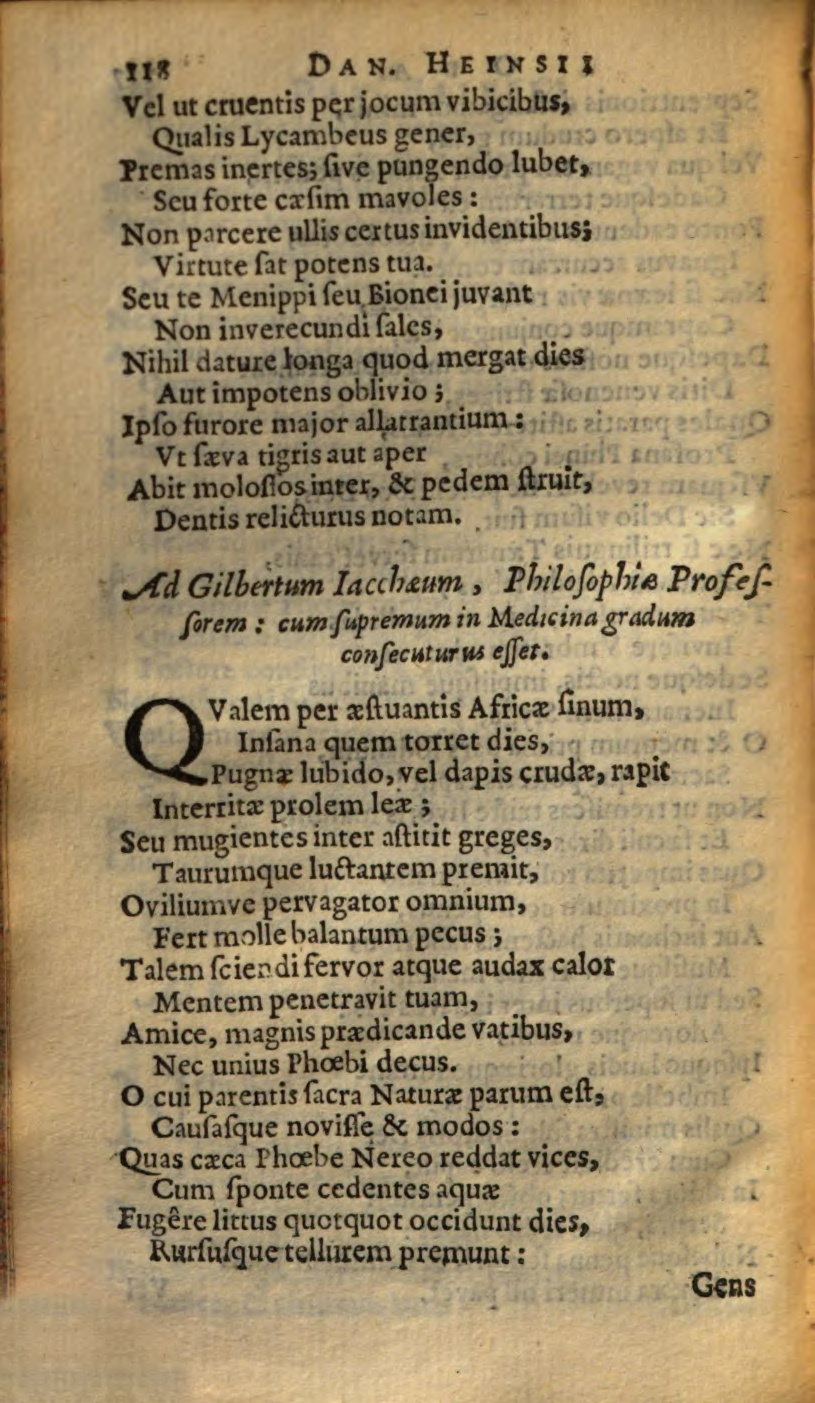 118 DAN. HEINSII
Vel ut cruentis per jocum vibicibus,
Qualis Lycambeus gener,
Premas inertes; ſive pungendo lubet,
Seu forte cæſim mavoles :
Non parcere ullis certus invidentibus;
Virtute ſat potens tua.
Seu te Menippi ſeu Bionei juvant
Non inverecundi ſales,
Nihil dature longa quod mergat dies
Aut impotens oblivio ;
Ipſo furore major allatrantium :
Vt ſæva tigris aut aper
Abit moloſſos inter, & pedem ſtruit,
Dentis relicturus notam.
Ad Gilbertum Iacchæum , Philoſophiæ Profeſ-
ſorem : cum ſupremum in Medicina gradum
conſecuturus eſſet.
QValem per æſtuantis Africæ ſinum,
Inſana quem torret dies,
Pugnæ lubido, vel dapis crudæ, rapit
Interritæ prolem leæ ;
Seu mugientes inter aſtitit greges,
Taurumque luctantem premit,
Oviliumve pervagator omnium,
Fert molle balantum pecus ;
Talem ſciendi fervor atque audax calor
Mentem penetravit tuam,
Amice, magnis prædicande vatibus,
Nec unius Phœbi decus.
O cui parentis ſacra Naturæ parum eſt,
Cauſaſque noviſſe & modos :
Quas cæca Phœbe Nereo reddat vices,
Cum ſponte cedentes aquæ
Fugêre littus quotquot occidunt dies,
Rurſuſque tellurem premunt :
Gens